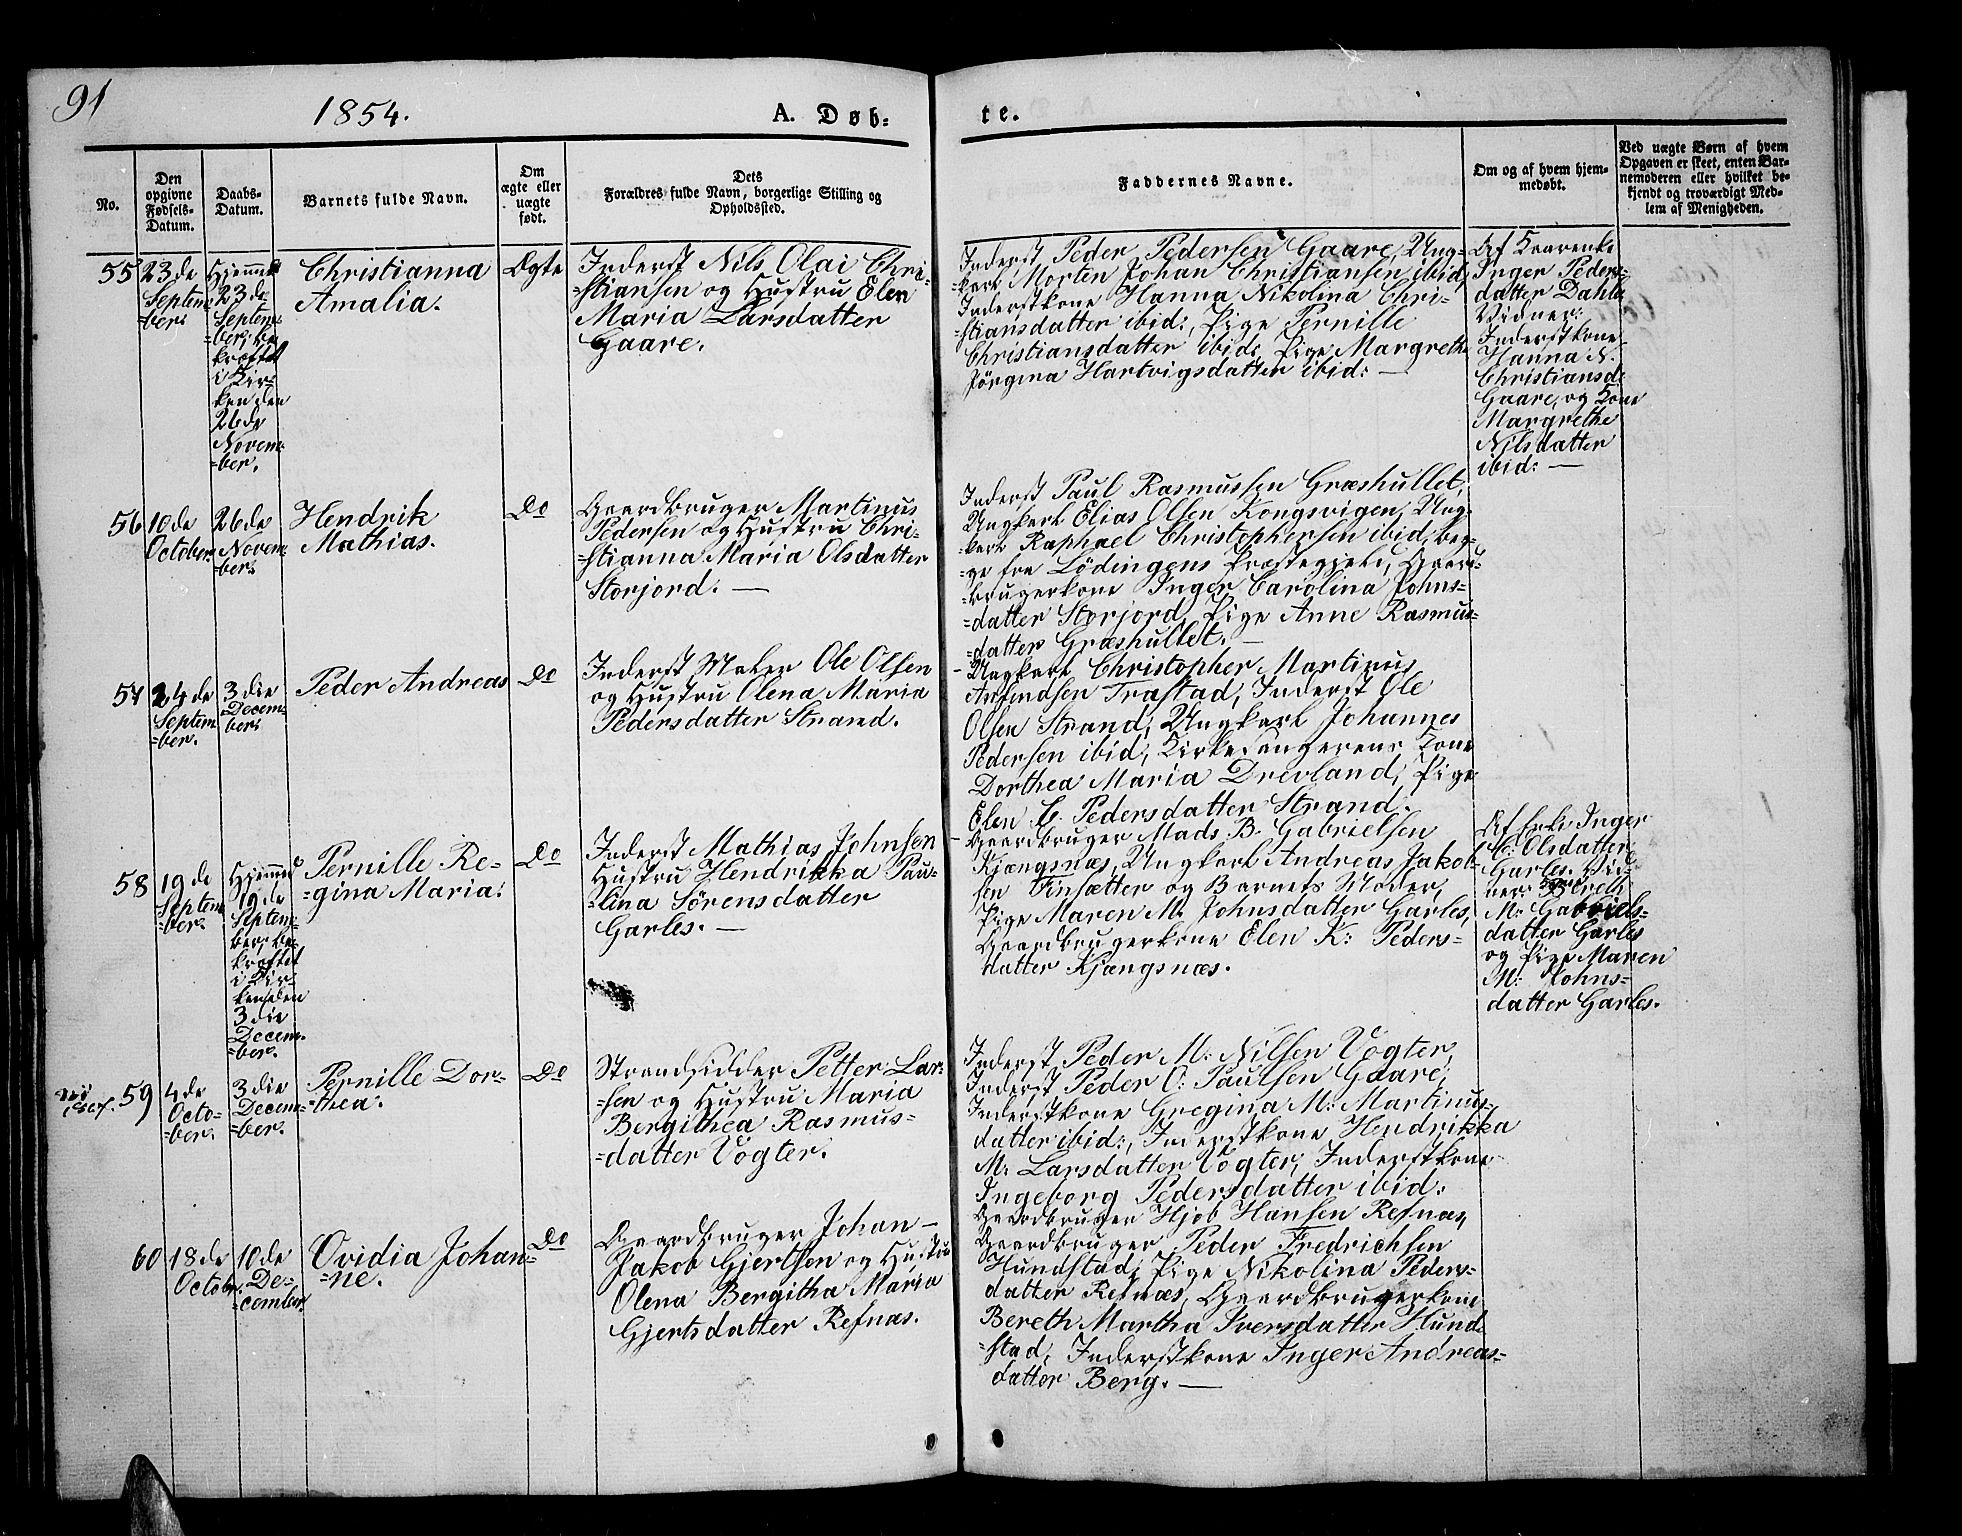 91
1854.
A. Døb-
te.
No.
Den
opgivne
Fødsels-
Datum.
Daabs-
Datum.
Barnets fulde Navn.
Om
ægte eller
uægte
født.
Dets
Forældres fulde Navn, borgerlige Stilling og
Opholdssted.
Faddernes Navne.
Om og af hvem hjem-
medøbt.
Ved uægte Børn af hvem
Opgaven er skeet, enten Bar-
nemoderen eller hvilket be-
kjendt og troværdigt Med-
lem af Menigheden.
55
23de
Septem-
=ber:
Hjemme
23de
Septem-
=ber, be-
kræftet
i Kir-
ken den
26de
Novem-
=ber.
Christianna
Amalia.
Ægte
Inderst Nils Olai Chri-
=stiansen og Hustru Elen
Maria Larsdatter
Gaare.
Inderst Peder Pedersen Gaare, Ung-
=karl Morten Johan Christiansen ibid,
Inderstkone Hanna Nikolina Chri-
=stiansdatter ibid:, Pige Pernille
Christiansdatter ibid:, Pige Margrethe
Jörgina Hartvigsdatter ibid: —
Af
Inger Peders-
datter Dahle
Vidner:
Inderstkone
Hanna N.
Christiansd:
Gaare, og Kone
Margrethe
Nilsdatter
ibid: —
56
10de
October
26de
Novem-
ber:
Hendrik
Mathias.
Do
Gaardbruger Martinus
Pedersen og Hustru Chri-
=stianna Maria Olsdatter
Storjord. —
Inderst Paul Rasmussen Græshullet,
Ungkarl Elias Olsen Kongsvigen, Ung-
=karl Raphael Christophersen ibid, beg-
=ge fra Lödingens Præstegjeld, Gaard-
=brugerkone Inger Carolina Johns-
=datter Storjord, Pige Anne Rasmus-
=datter Græshullet. —
57
24de
Septem-
=ber.
3die
Decem-
ber:
Peder Andreas
Do
Inderst Maler Ole Olsen
og Hustru Olena Maria
Pedersdatter Strand.
- Ungkarl Christopher Martinus
Amundsen Trastad, Inderst Ole
Olsen Strand, Ungkarl Johannes
Pedersen ibid, Kirkesangerens Kone
Dorthea Maria Drevland, Pige
Elen C. Pedersdatter Strand.
58
19de
Septem-
=ber.
Hjemme
19de
Septem-
ber, be-
kræftet
i Kir-
ken den
3die
Decem-
=ber.
Pernille Re-
=gina Maria.
Do
Inderst Mathias Johnsen
Hustru Hendrikka Pau-
=lina Sørensdatter
Garles. —
- Gaardbruger Mads B. Gabrielsen
Kjængsnæs, Ungkarl Andreas Jakob-
sen Finsætter og Barnets Moder,
Pige Maren M. Johnsdatter Garles,
Gaardbrugerkone Elen K: Peders-
datter Kjængsnæs.
Af Enke Inger
C: Olsdatter
Garles. Vid-
ner: Bereth
M: Gabriels-
datter Garles
og Pige Maren
M: Johns-
datter Garles.
59
4de
Octo-
=ber.
3die
Decem-
=ber.
Pernille Dor-
=thea.
Do
Strandsidder Petter Lar-
=sen og Hustru Maria
Bergithea Rasmus-
=datter Vogter.
Inderst Peder M: Nilsen Vogter,
Inderst Peder O: Paulsen Gaare,
Inderstkone Gregina M: Martinus-
datter ibid:, Inderstkone Hendrikka
M: Larsdatter Vogter, Inderstkone
Ingeborg Pedersdatter ibid:
60
18de
Octobr.
10de
De-
=cember
Ovidia Johan-
=ne.
Do
Gaardbruger Johan
Jakob Gjertsen og Hustru
Olena Bergitha Maria
Gjertsdatter Refnæs.
Gaardbruger Hjob Hansen Refnæs,
Gaardbruger Peder Fredrichsen
Hundstad, Pige Nikolina Peders-
datter Refnæs, Gaardbrugerkone
Bereth Martha Iversdatter Hund-
=stad, Inderstkone Inger Andreas-
datter Berg. —